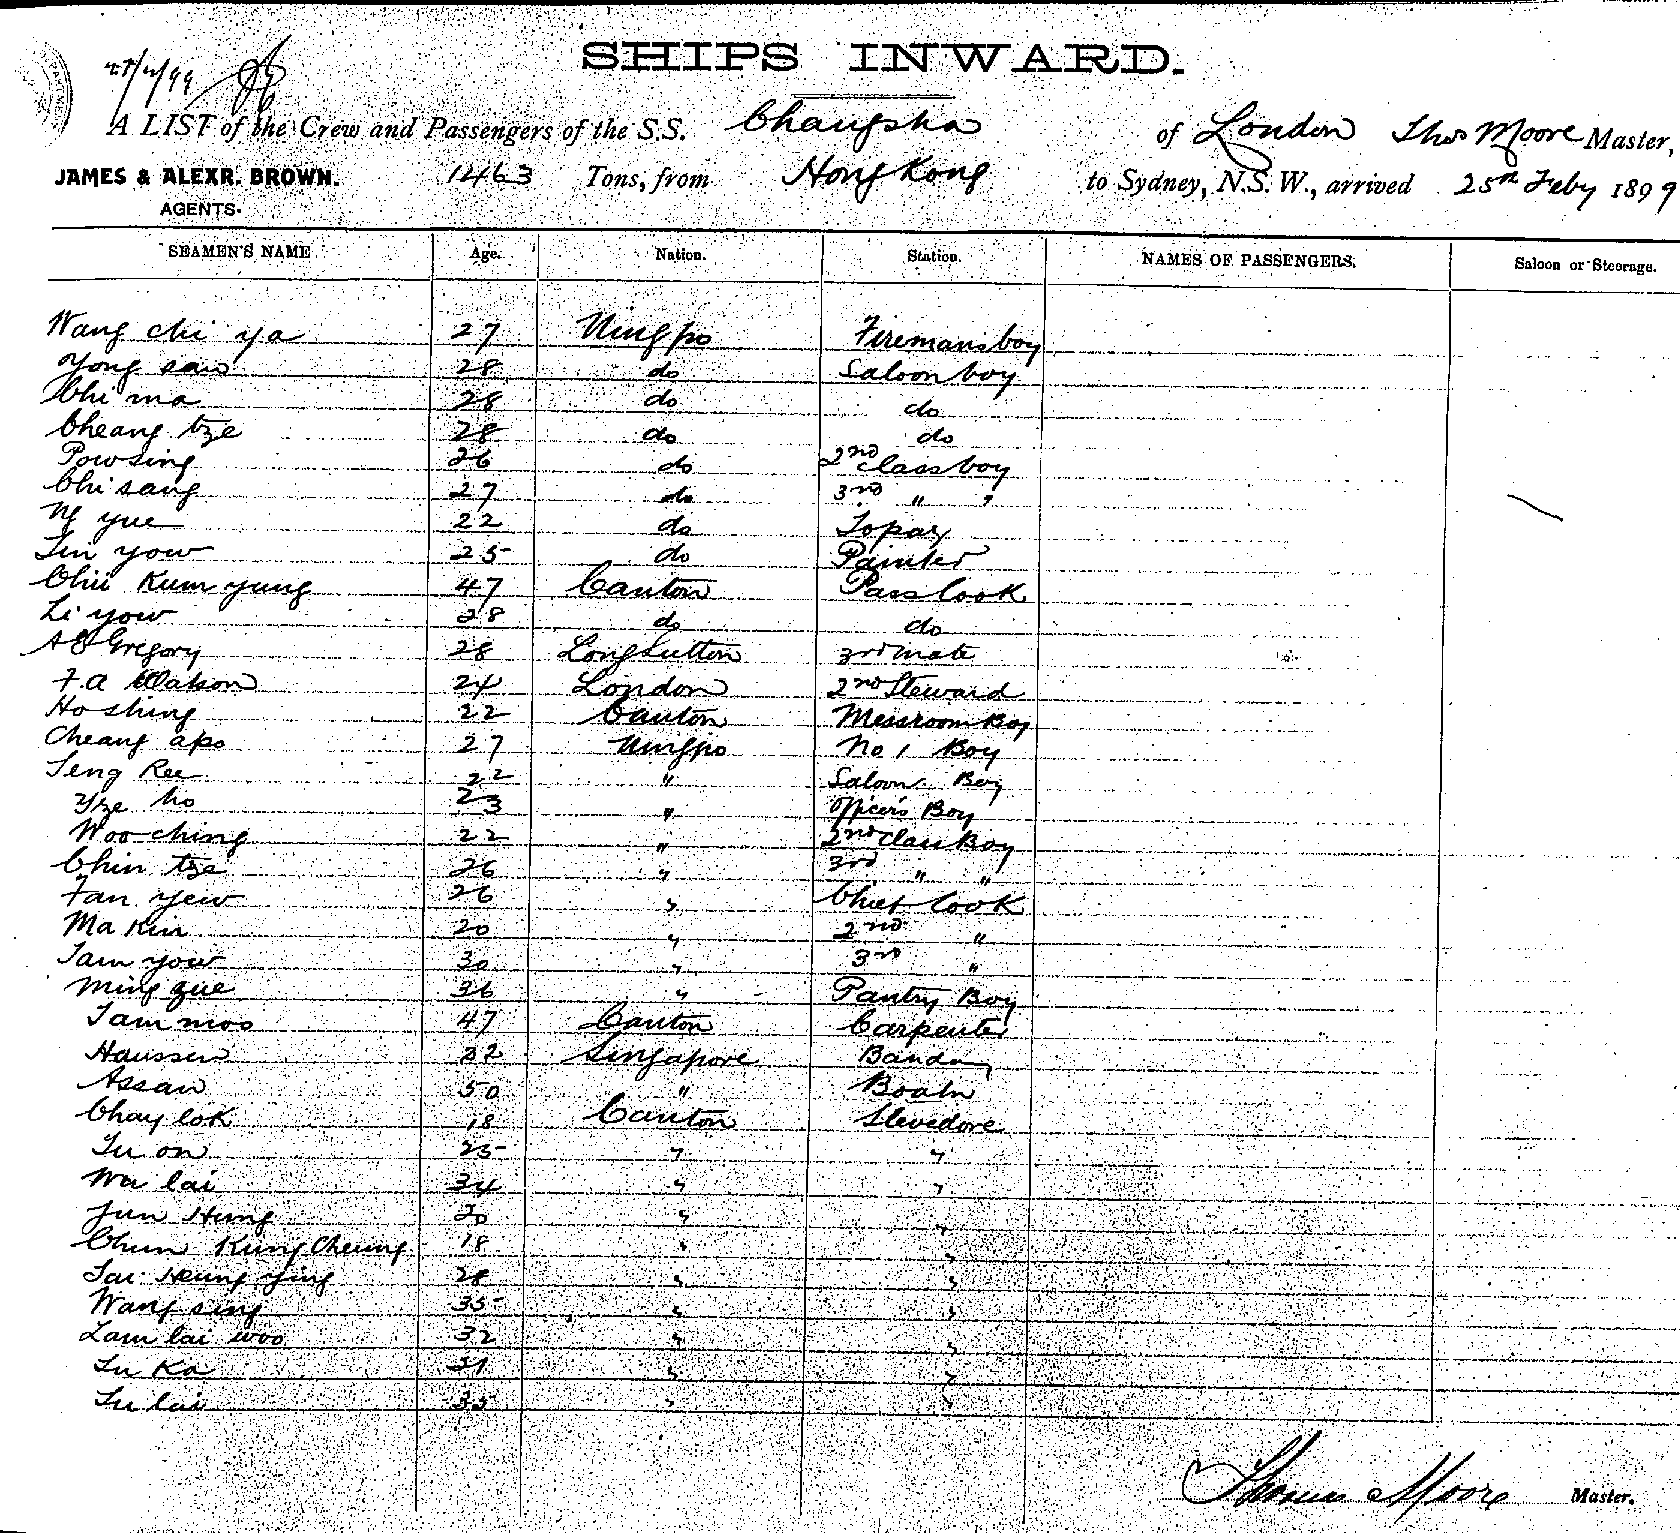 SHIPS INWARD.
A LIST of the Crew and Passengers of the S.S. Changsha of London Thos Moore Master,
JAMES & ALEXR. BROWN. 1463 Tons, from Hong Kong to Sydney, N.S.W., arrived 25th Feby 1899
AGENTS.
SEAMEN'S NAME Age. Nation. Station. NAMES OF PASSENGERS. Saloon or Steerage.
Wang chi ya 27 Ningpo Firemans boy
Yong saw 28 do Saloon boy
Chi ma 28 do do
Cheang tze 28 do do
Pow sing 26 do 2nd class boy
Chi sang 27 do 3rd " "
Ng yue 22 do Topaz
Lin yow 25 do Painter
Chii Kum yung 47 Canton Pass Cook
Li yow 28 do do
A E Gregory 28 Long Sutton 3rd mate
F. A Watson 24 London 2nd Steward
Ho shing 22 Canton Messroom Boy
Cheang apo 27 Ningpo No 1 Boy
Seng Kee 22 " Saloon Boy
Yze ho 23 " Officers Boy
Woo ching 22 " 2nd Class Boy
Chin tze 26 " 3rd " "
Fan yew 26 " Chief Cook
Ma Kin 20 " 2nd "
Tam yow 30 " 3rd "
Ming zue 36 " Pantry Boy
Tam moo 47 Canton Carpenter
Haussen 32 Singapore
Assan 50 " Boatn
Chay lok 18 Canton Stevedore
Su on 25 " "
Wa lai 34 " "
Jun Hung 20 " "
Chun Kung Cheung 18 " "
Tai Heung ying 28 " "
Wang sing 35 " "
Lam lai woo 32 " "
Su Ka 21 " "
Su lai 35 " "
Thomas Moore Master.